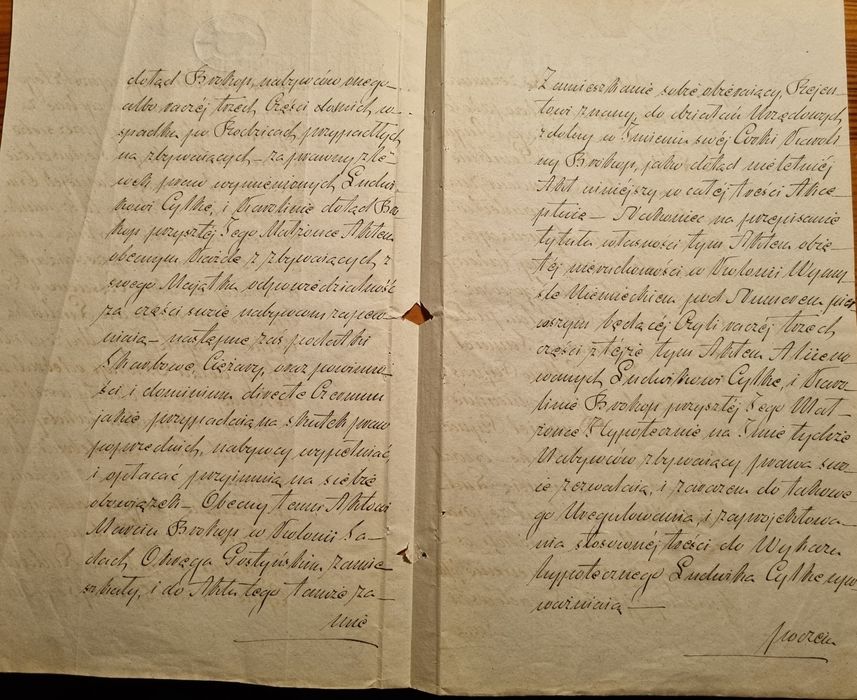 dotąd Brokop, nabywców niego
albo raczéj trzech Części dośich w
spadku po Rodzicach przypadłych
na zbywaiących – zaprawny
wech praw wymienionych Ludwi-
kowi Cytke, i Karolinie dotąd Bro
kop przyszłéj Jego Małżonce Aktem
obecnym Każda z zbywaiących z
swego Maiątku odpowiedzialność
za części swoie nabywcom zapew-
niaią – następnie zaś podatki
Skarbowe, Ciężary, oraz powinno
ści, i dominium directe Czernim
jakie przypadaią na skutek praw
poprzednich, nabywcy wypełniać,
i opłacać przyimuią na siebie
obowiązek – Obecny temu Aktowi
Marcin Brokop w Kolonii Sa-
dach Okręgu Gostyńskim zamie
szkały, i do Aktu tego tamże za-
mie
Zamieszkanie sobie obieraiący, Rejen-
towi znany, do działań Urzędowych
zdolny w Imieniu swéj Córki Karoli
ny Brokop, jako dotąd nieletniéj
Akt niniejszy w całéj treści Akce
ptuie – Nakoniec na przepisanie
tytułu własności tym Aktem obię
téj nieruchomości w Kolonii Wymy
śle Niemieckiem pod Numerem pier
wszym będącéj Czyli raczéj trzech
części z téjże tym Aktem Alieno
wanych Ludwikowi Cytke, i Karo-
linie Brokop przyszłéj Jego Mał-
żonce Hypotecznie na Imie tychże
Nabywców zbywaiący prawa swo-
ie zezwalaią, i zarazem do takowe
go Uregulowania, i zaprojektowa-
nia stosownéj treści do Wykazu
hypotecznego Ludwika Cytke upo
ważniaią –
poczem